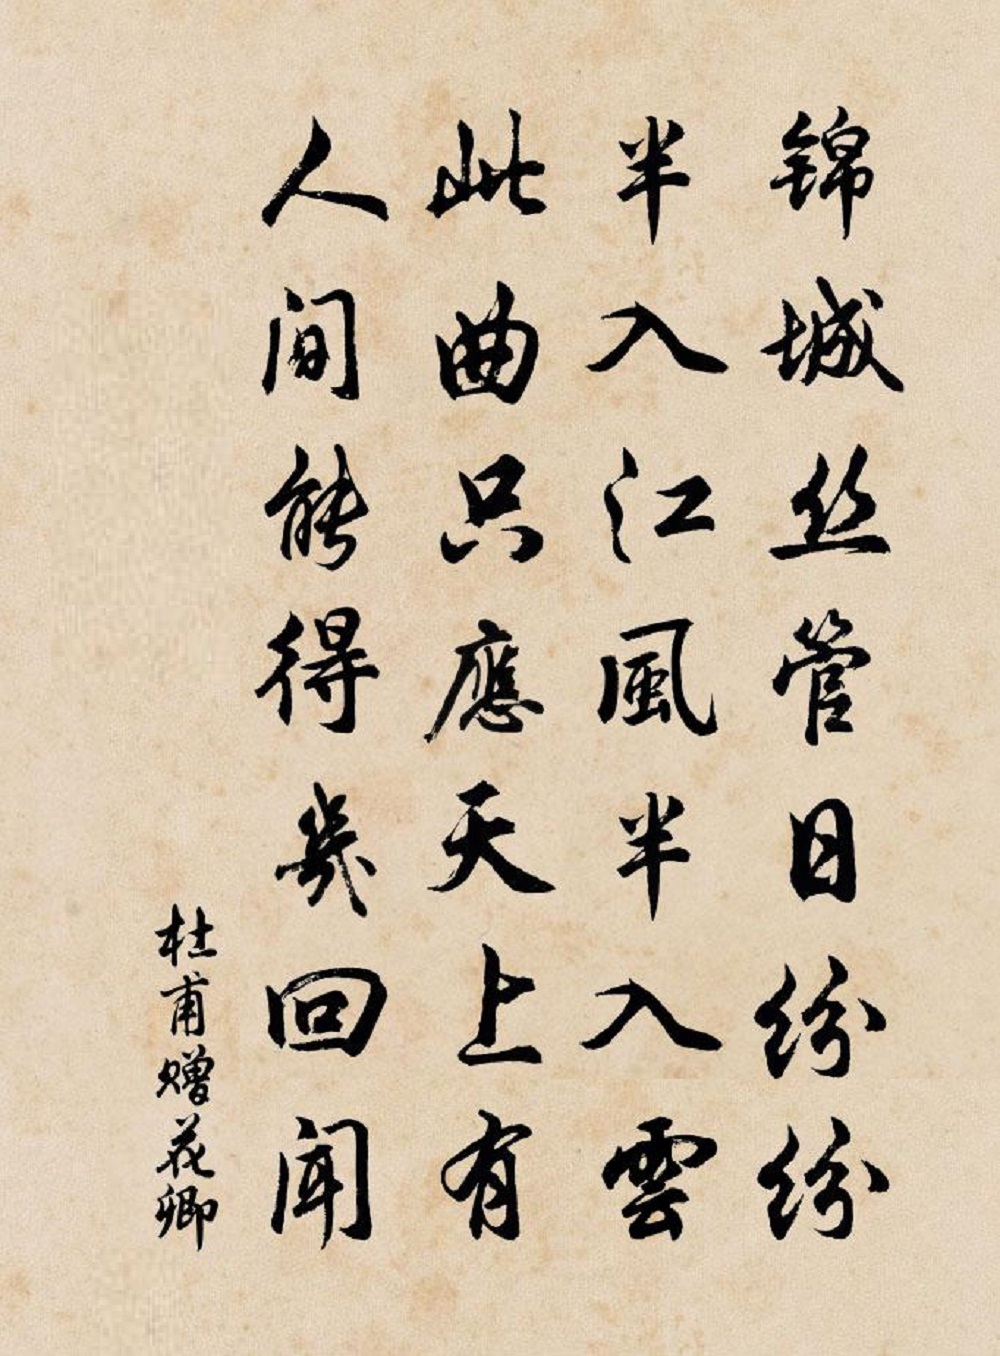 锦城丝管日纷纷
半入江風半入雲
此曲只應天上有
人间能得幾回闻
杜甫赠花卿